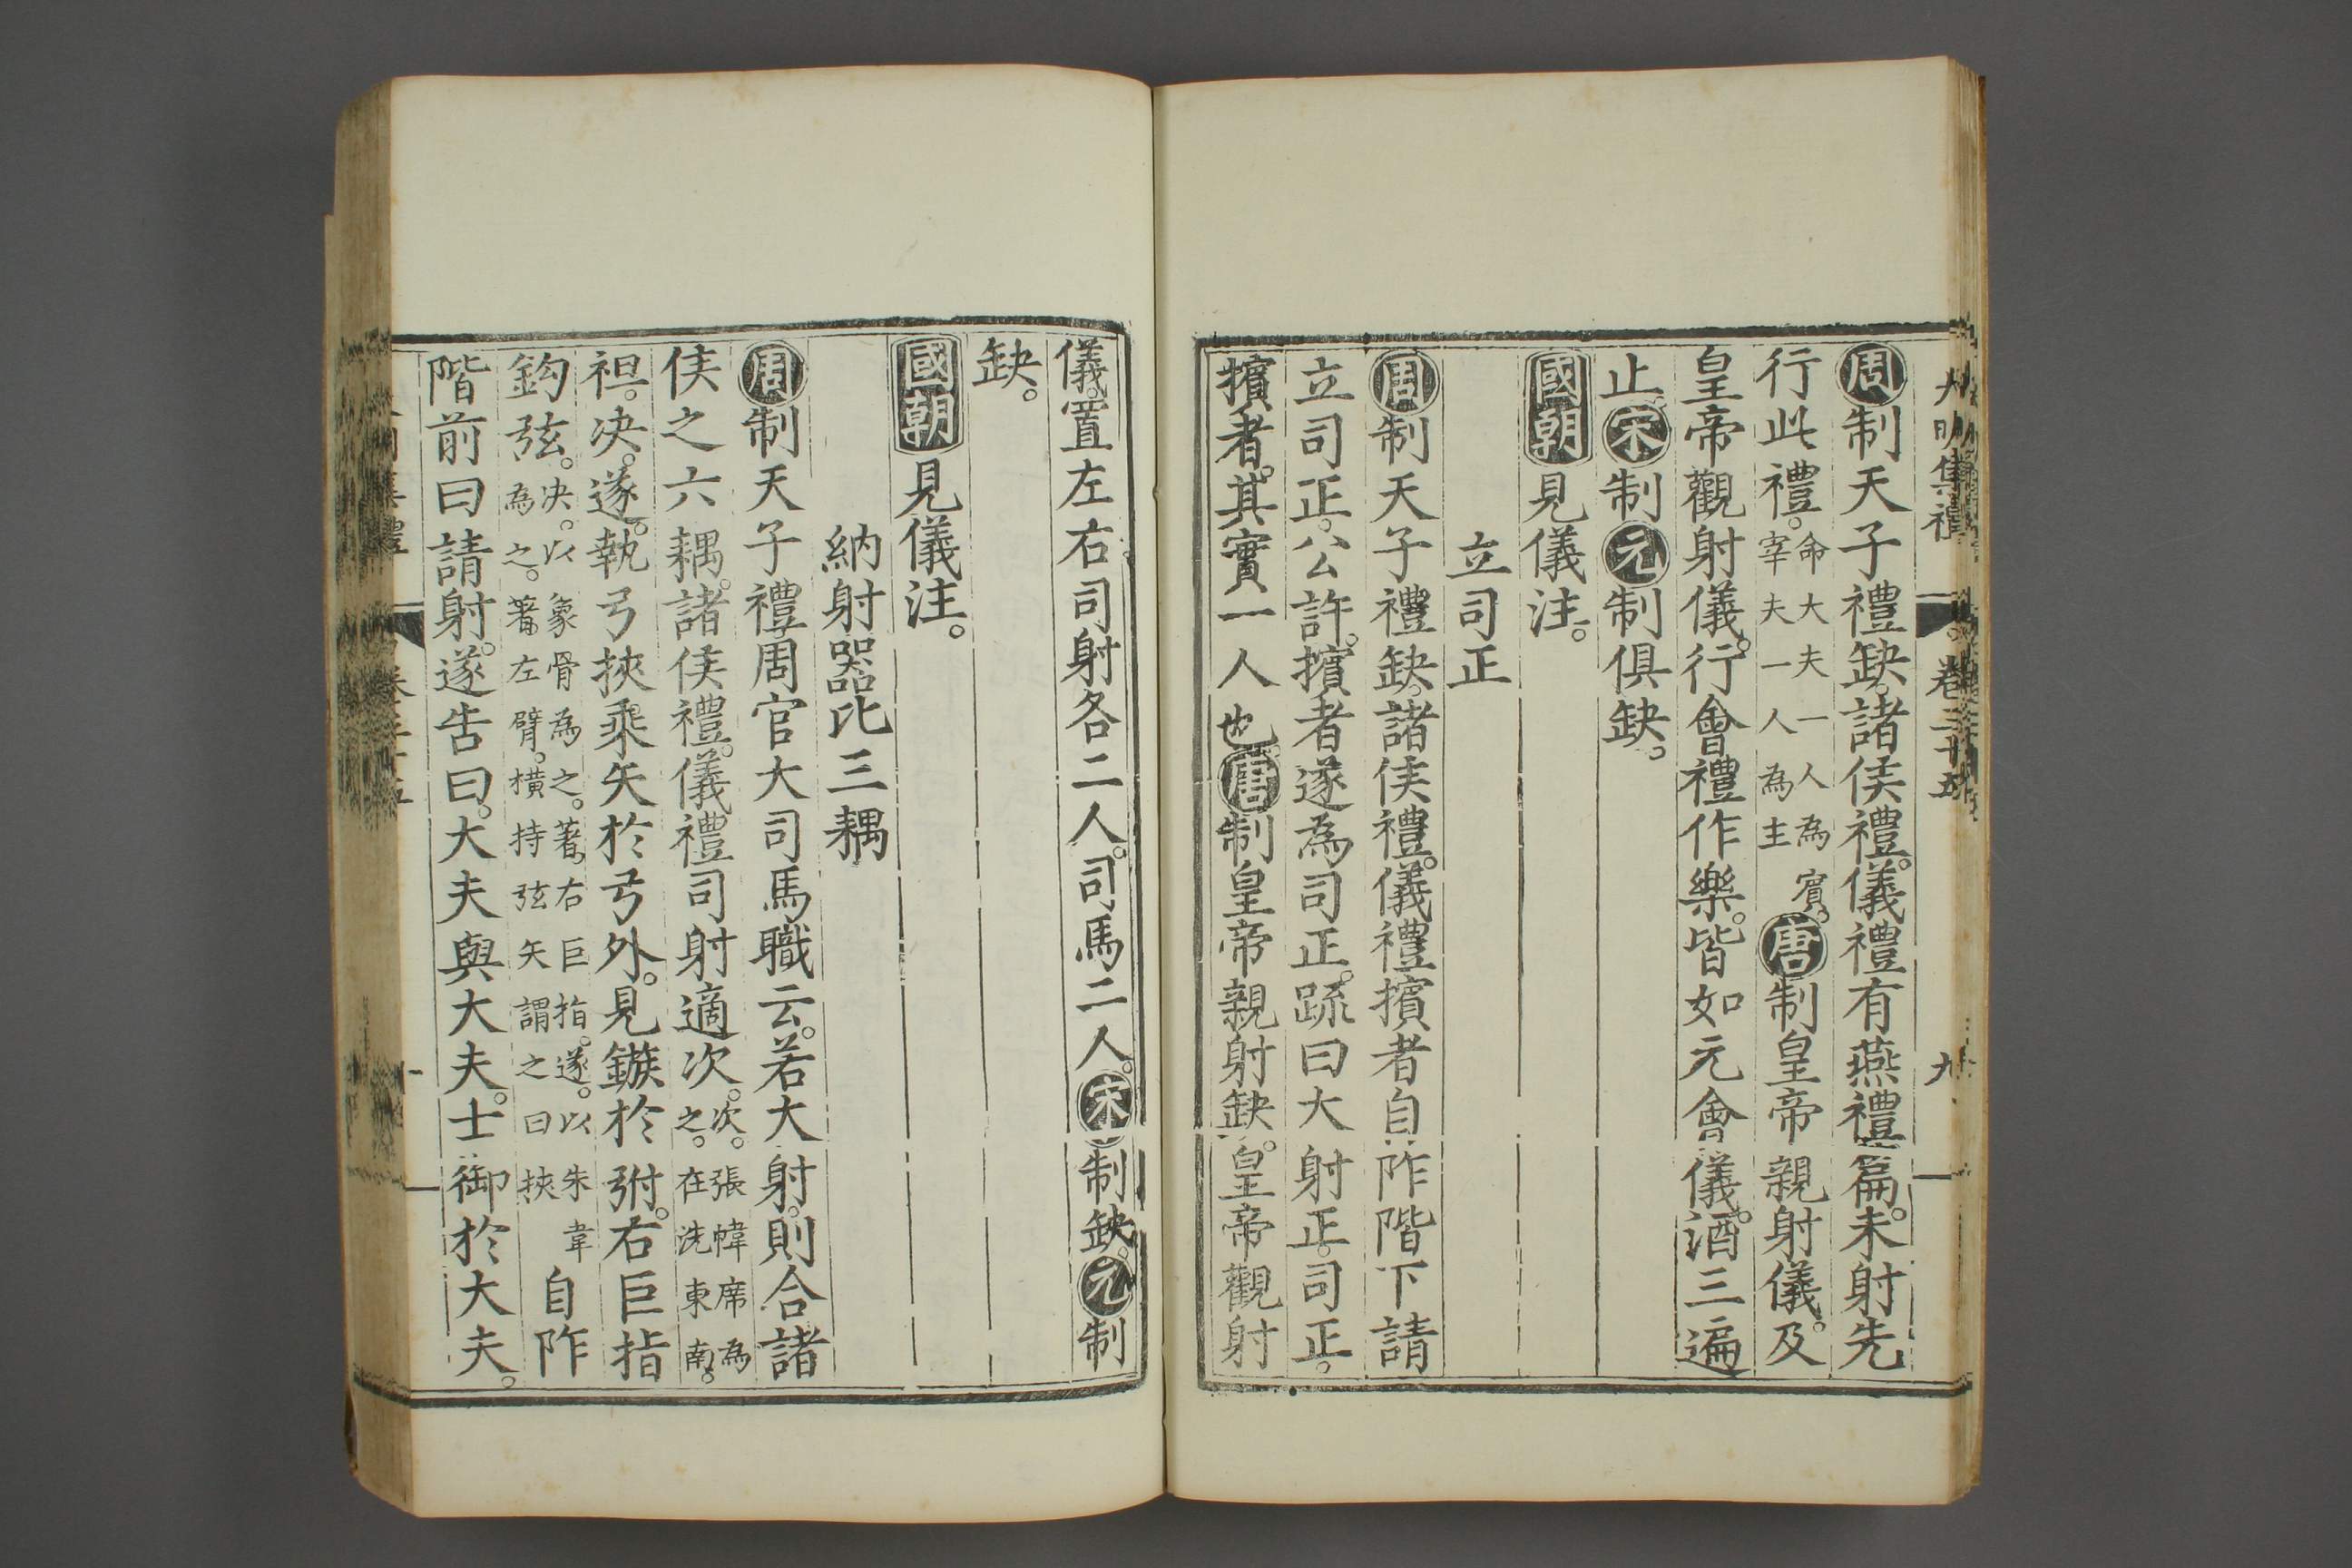 大明集禮 卷三十五 九
周制天子禮缺。諸侯禮。儀禮有燕禮篇。未射先
行此禮。命大夫一人為賓。宰夫一人為主唐制皇帝親射儀。及
皇帝觀射儀。行會禮作樂。皆如元會儀。酒三遍
止宋制元制俱缺。
國朝見儀注。
立司正
周制天子禮缺。諸侯禮。儀禮擯者自阼階下請
立司正。公許。擯者遂為司正。疏曰大射正。司正。
擯者。其實一人也。唐制皇帝親射缺。皇帝觀射
儀。置左右司射各二人。司馬二人。宋制缺。元制
缺。
國朝見儀注。
納射器比三耦
周制天子禮周官大司馬職云。若大射。則合諸
侯之六耦。諸侯禮。儀禮司射適次。次。張幃席為之。在洗東南。
袒。决。遂。執弓挾乘矢於弓外。見鏃於弣。右巨指
鈎弦。决。以象骨為之。著右巨指。遂。以朱韋為之。著左臂。橫持弦矢謂之曰挾自阼
階前曰請射。遂告曰。大夫與大夫。士御於大夫。